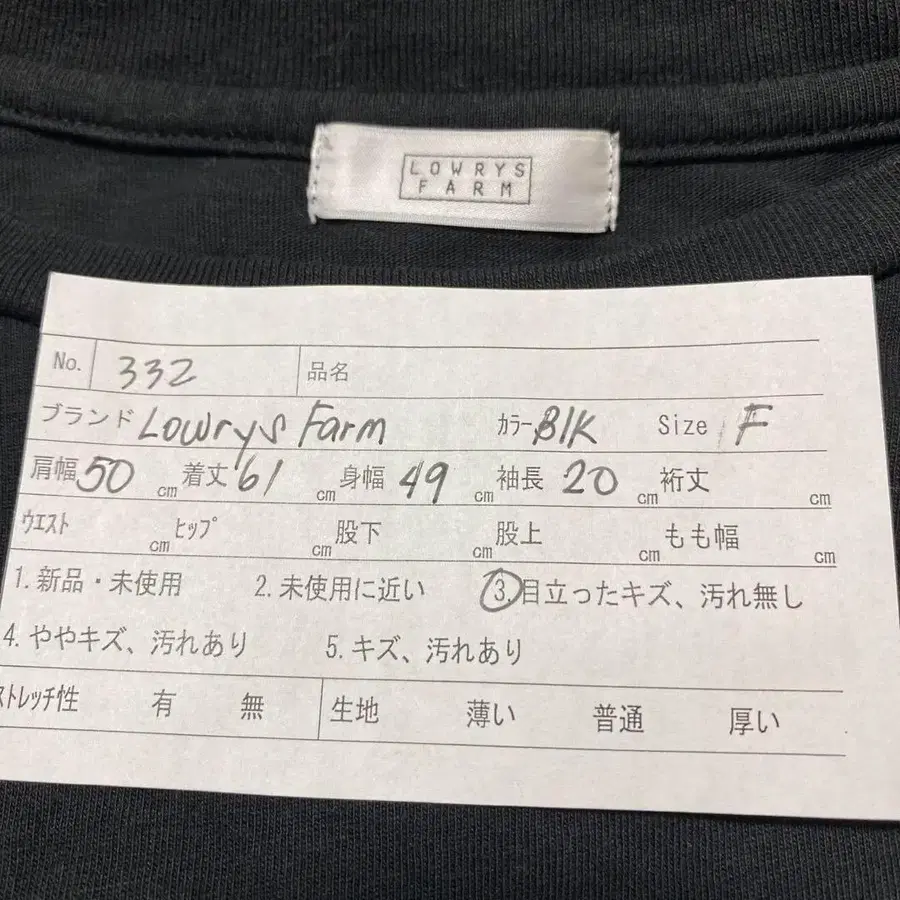 LOWRYS
FARM
No. 332 品名
ブランド Lowrys Farm カラー Blk Size F
肩幅 50 cm 着丈 61 cm 身幅 49 cm 袖長 20 cm 裄丈 cm
ウエスト cm ヒップ cm 股下 cm 股上 cm もも幅 cm
1.新品・未使用 2.未使用に近い 3.目立ったキズ、汚れ無し
4.ややキズ、汚れあり 5.キズ、汚れあり
ストレッチ性 有 無 生地 薄い 普通 厚い